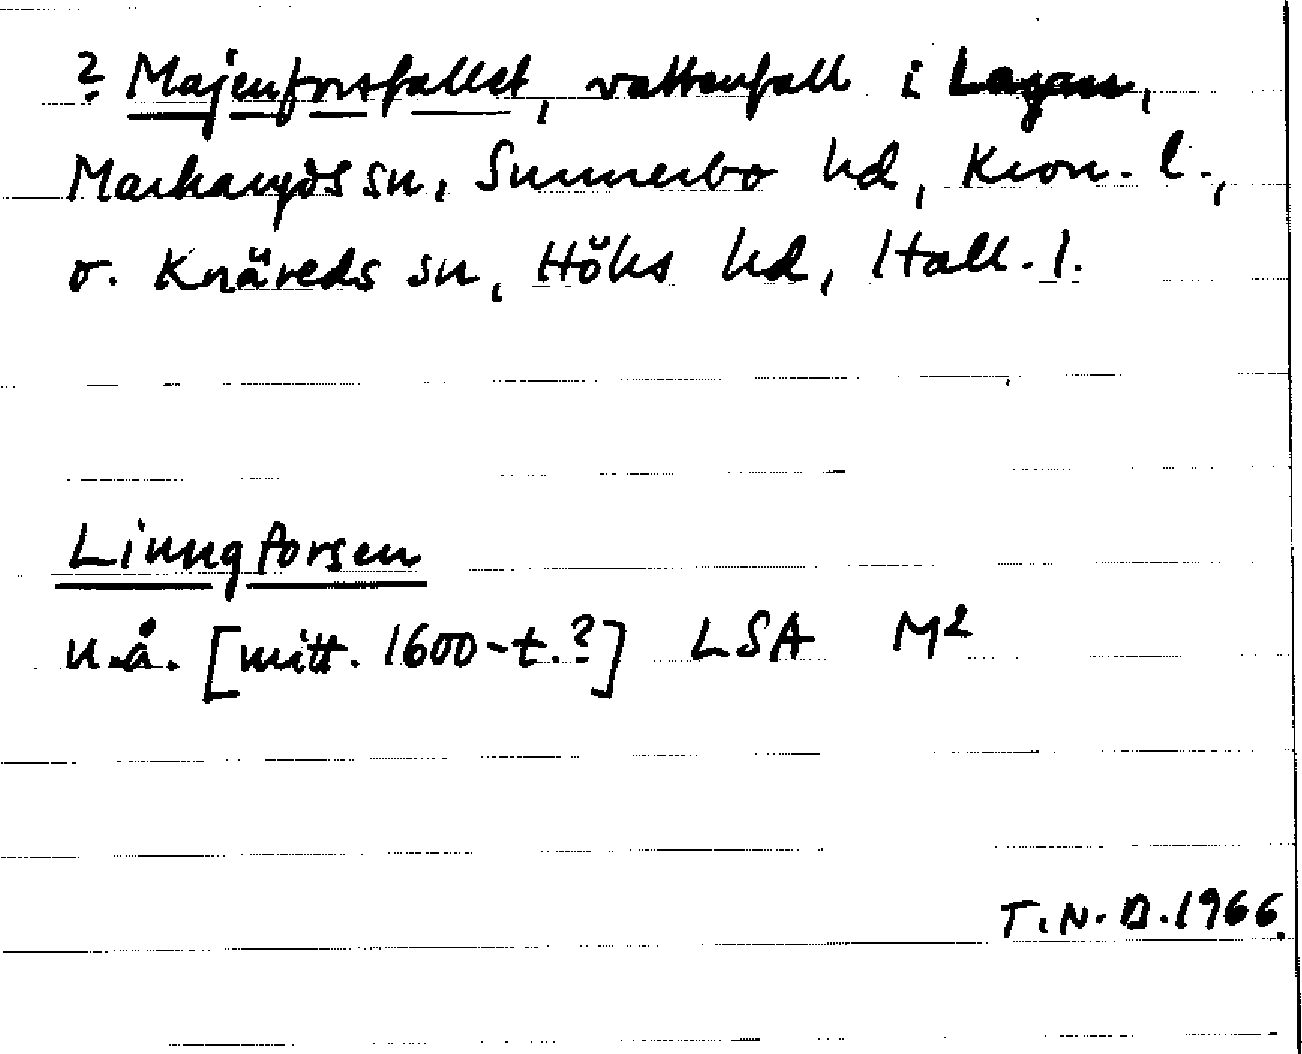 ? Majenforsfallet, vattenfall i Lagan,
Markaryds sn, Sunnerbo hd, Kron. l.,
o. Knäreds sn, Höks hd, Hall. l.
Linngforsen
u.å. [mitt. 1600-t.?] LSA M2
T.N.D. 1966.